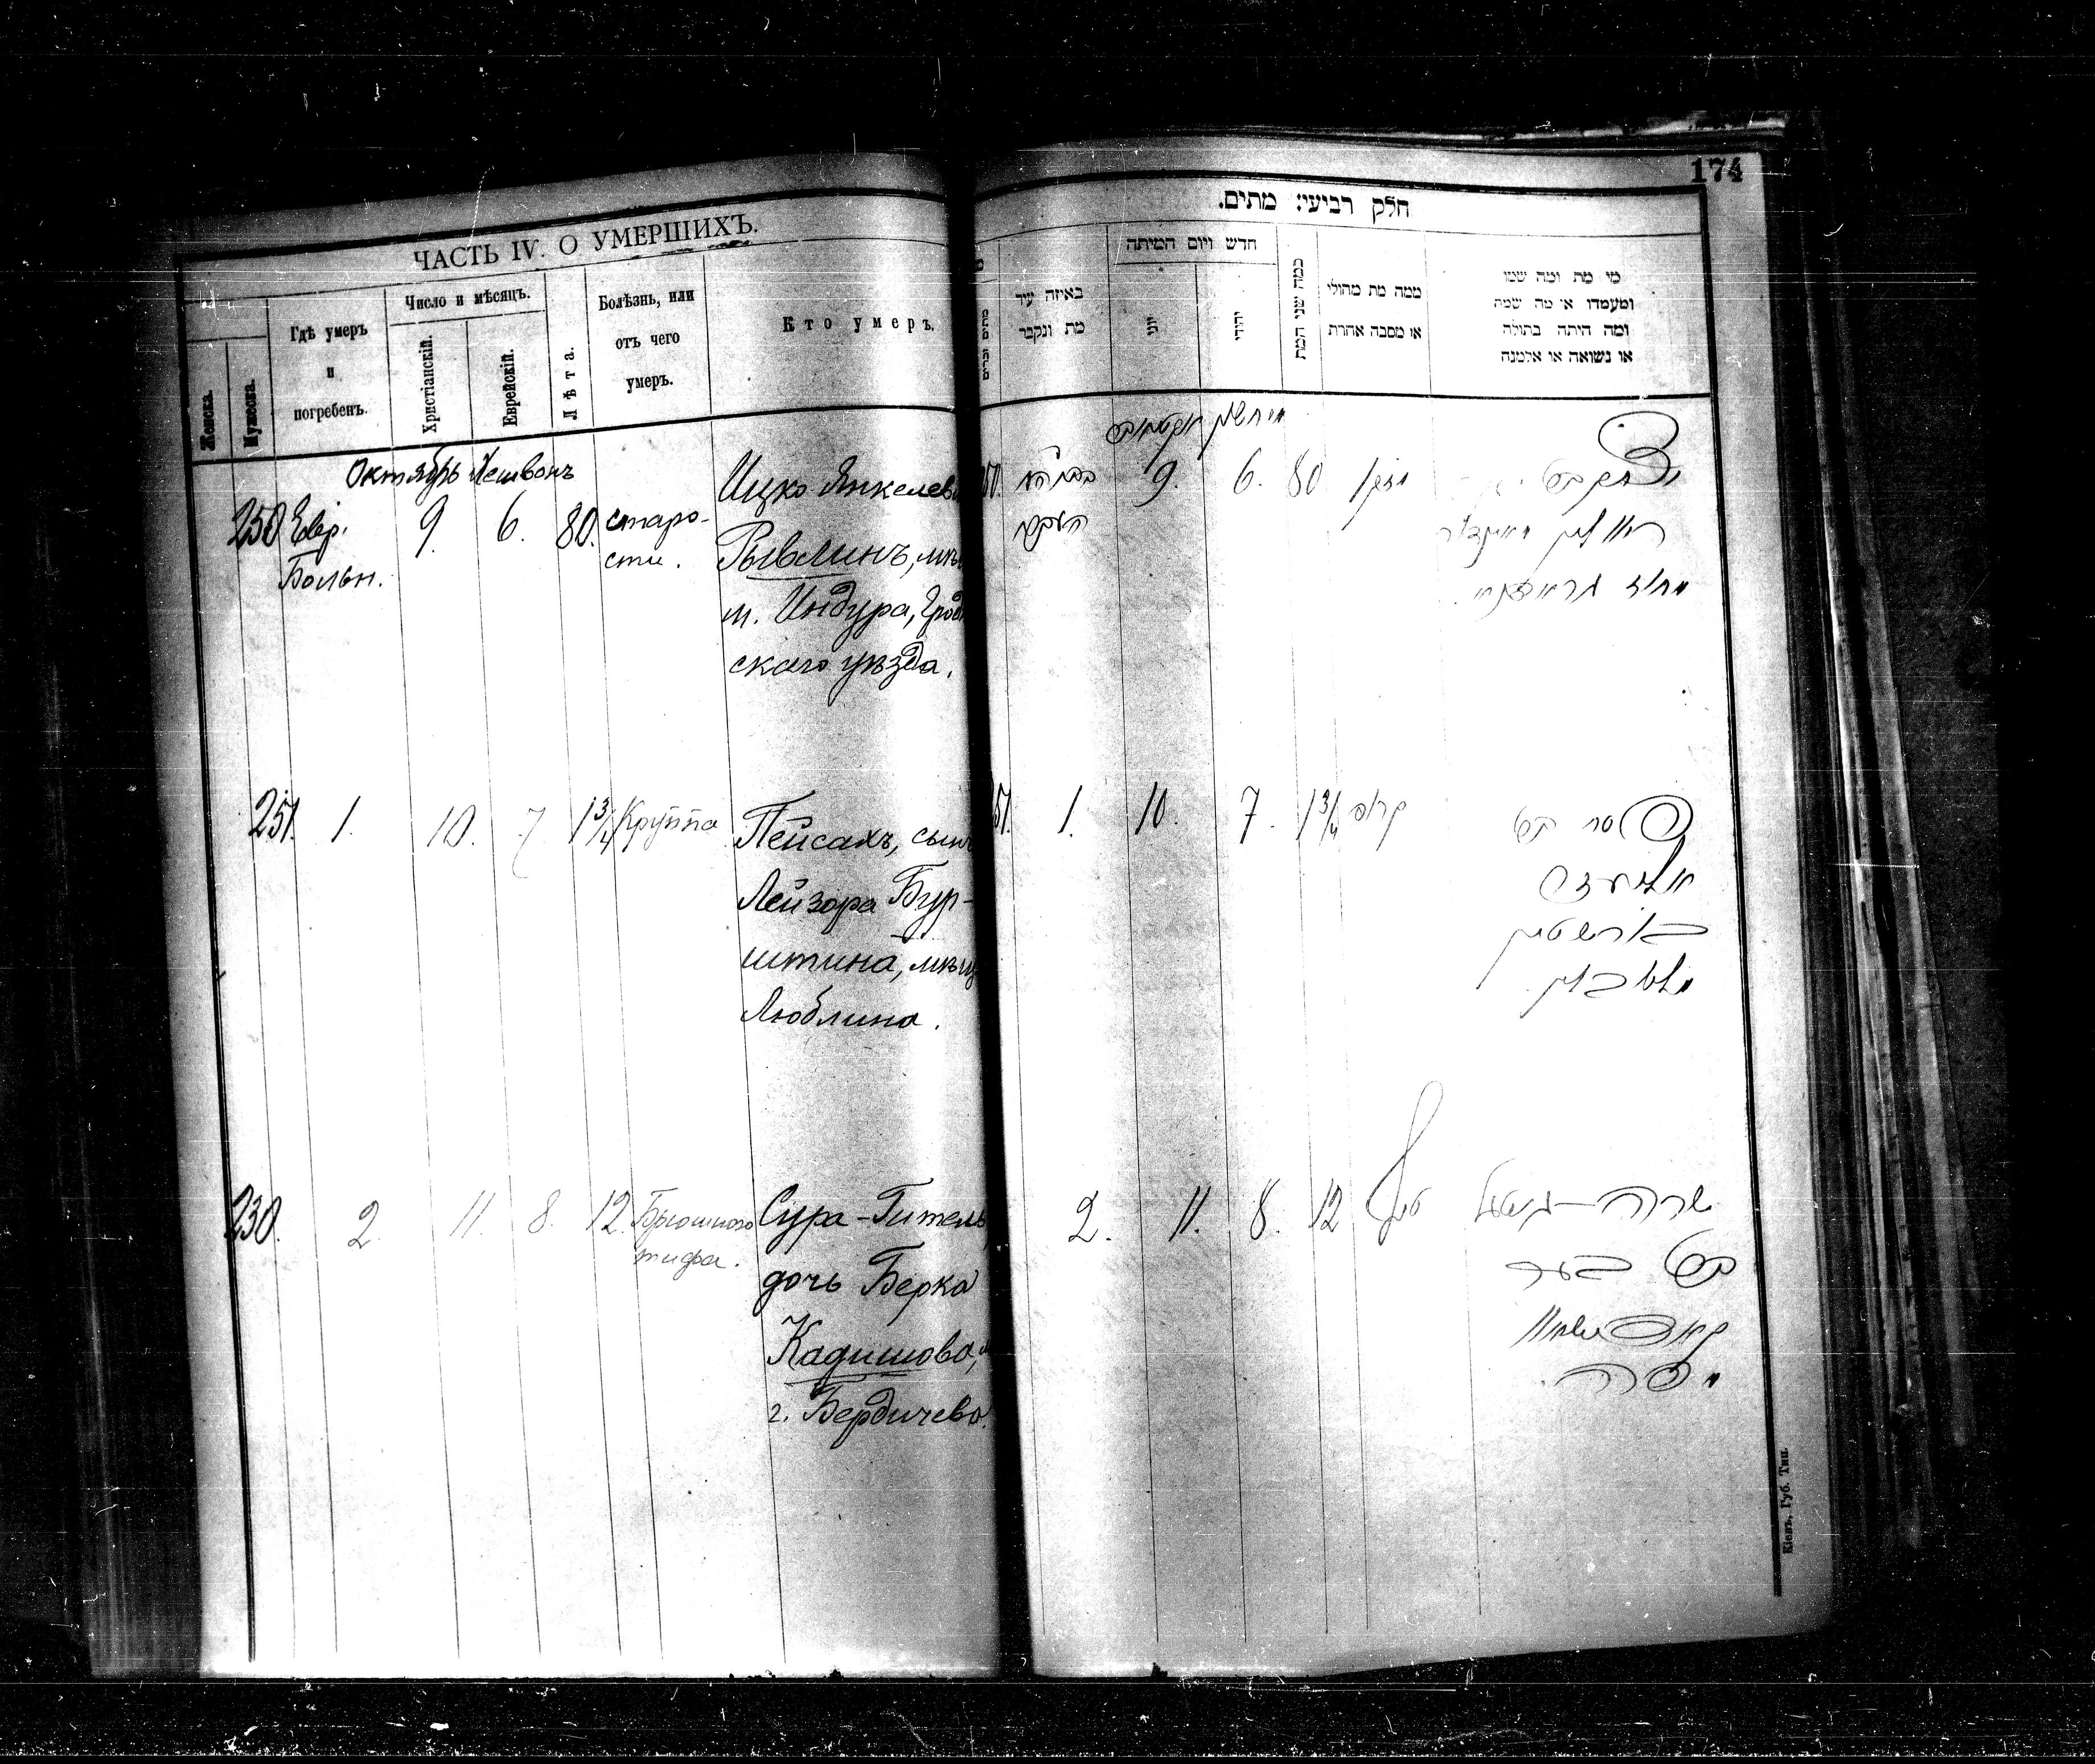 174
ЧАСТЬ IV. О УМЕРШИХЪ.
Женска.
Мужеска.
Гдѣ умеръ
и
погребенъ.
Число и мѣсяцъ.
Христіанскій.
Еврейскій.
Лѣта.
Болѣзнь, или
отъ чего
умеръ.
Кто умеръ.
Октябрь Хешвонъ
250 Евр. 9. 6. 80. старо-
Больн. сти.
Ицко Янкелев
Рывлинъ, мѣщ
м. Индура, Грод
скаго уѣзда.
251. 1. 10. 7. 1 3/4 Круппа
Пейсахъ, сынъ
Лейзора Бур-
штина, мѣщ
Люблина.
230. 2. 11. 8. 12. Брюшного
тифа.
Сура-Гитель,
дочь Берка
Кадишова,
г. Бердичева.
חלק רביעי: מתים.
באיזה עיר
מת ונקבר
חדש ויום המיתה
יוני
יהודי
כמה שני המת
ממה מת מחולי
או מסבה אחרת
מי מת ומה שמו
ומעמדו או מה שמה
ומה היתה בתולה
או נשואה או אלמנה
9. 6. 80
51. 1. 10. 7. 1 3/4 קרופ
בורשטיין
מלובלין
2. 11. 8. 12 טיף
שרה-גיטעל
בת בער
Кіевъ, Губ. Тип.